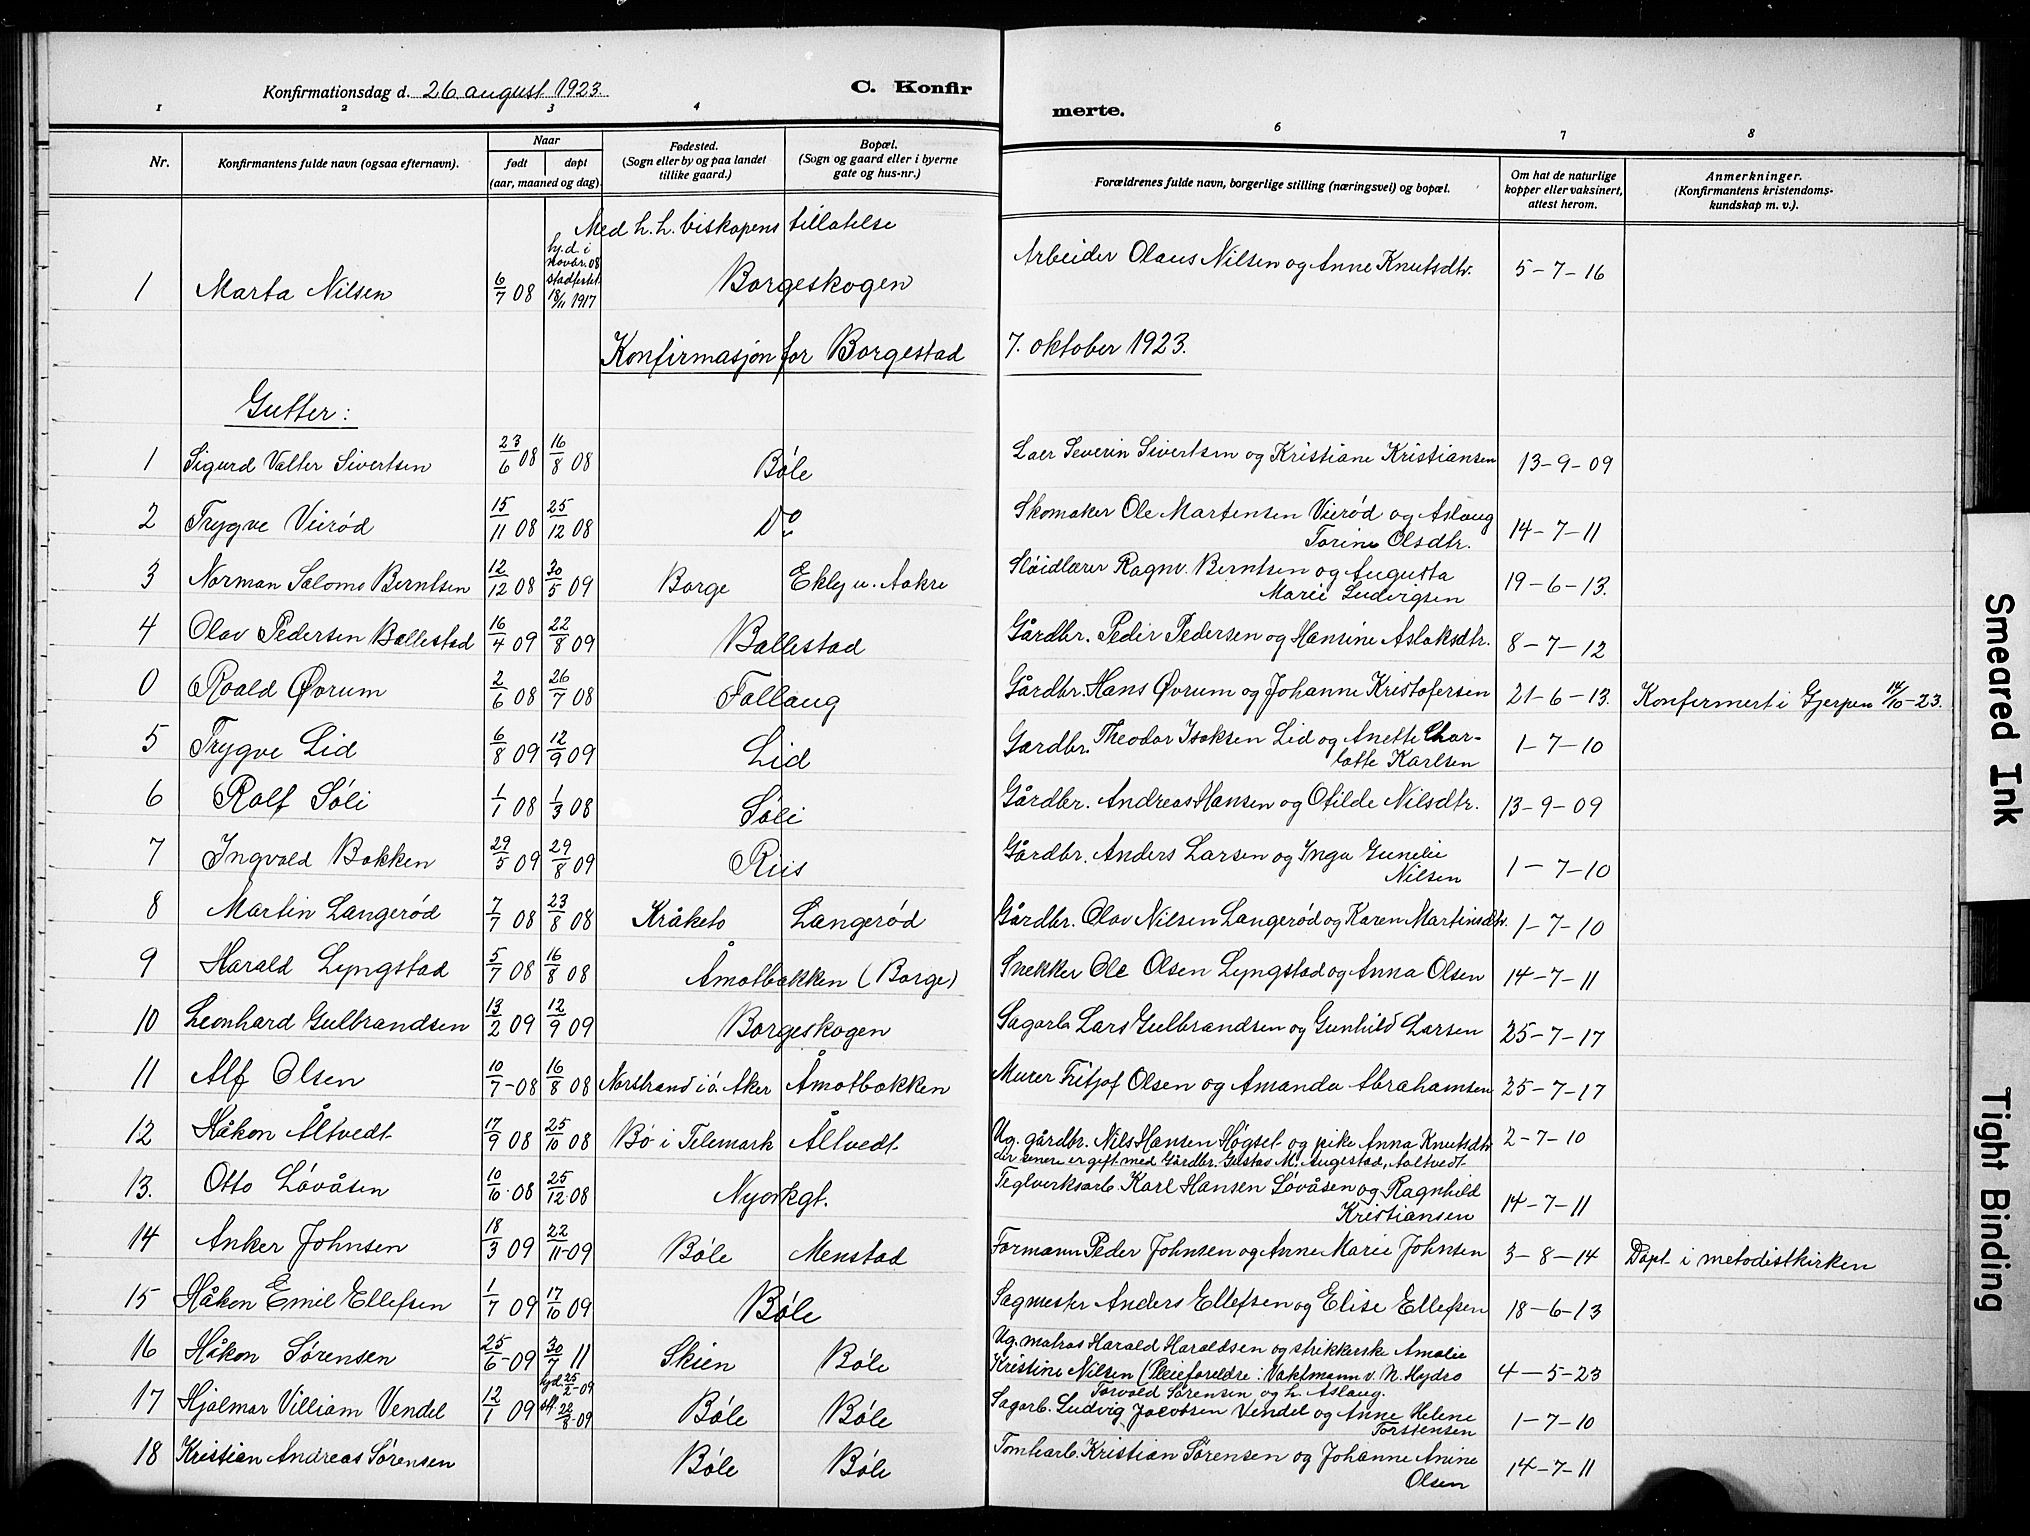 Konfirmationsdag d. 26 august 1923.
C. Konfir
merte.
1 2 3 4 6 7 8
Nr.
Konfirmantens fulde navn (ogsaa efternavn).
Naar
født døpt
(aar, maaned og dag).
Fødested.
(Sogn eller by og paa landet
tillike gaard.)
Bopæl.
(Sogn og gaard eller i byerne
gate og hus-nr.)
Forældrenes fulde navn, borgerlige stilling (næringsvei) og bopæl.
Om hat de naturlige
kopper eller vaksinert,
attest herom.
Anmerkninger.
(Konfirmantens kristendoms-
kundskap m. v.).
Med h. h. biskopens tillatelse
1 Marta Nilsen 6/7 08 hj.d. i novbr. 08 stadfestet 18/11 1917 Borgeskogen Arbeider Olaus Nilsen og Anne Knutsdtr. 5-7-16
Konfirmasjon for Borgestad 7. oktober 1923.
Gutter:
1 Sigurd Valter Sivertsen 23/6 08 16/8 08 Bøle Laer Severin Sivertsen og Kristiane Kristiansen 13-9-09
2 Trygve Veirød 15/11 08 25/12 08 Do Skomaker Ole Martensen Vierød og Aslaug
Torine Olsdtr. 14-7-11
3 Norman Salomo Berntsen 12/12 08 30/5 09 Borge Ekly u. Aakre Sløidlærer Ragnv. Berntsen og Augusta
Marie Ludvigsen 19-6-13.
4 Olav Pedersen Ballestad 16/4 09 22/8 09 Ballestad Gårdbr. Peder Pedersen og Hansine Aslaksdtr. 8-7-12
0 Roald Øvrum 2/6 08 26/7 08 Follaug Gårdbr. Hans Øvrum og Johanne Kristofersen 21-6-13. Konfirmert i Gjerpen 14/10-23.
5 Trygve Lid 6/8 09 12/9 09 Lid Gardbr. Theodor Isaksen Lid og Anette Char-
lotte Karlsen 1-7-10
6 Rolf Søli 1/1 08 1/3 08 Søli Gårdbr. Andreas Hansen og Otilde Nilsdtr. 13-9-09
7 Ingvald Bakken 29/5 09 29/8 09 Riis Gårdbr. Anders Larsen og Inga Gunelie
Nilsen 1-7-10
8 Martin Langerød 7/7 08 23/8 08 Kråketo Langerød Gårdbr. Olav Nilsen Langerød og Karen Martinsdtr. 1-7-10
9 Harald Lyngstad 5/7 08 16/8 08 Åmotbakken (Borge) Snekker Ole Olsen Lyngstad og Anna Olsen 14-7-11
10 Leonhard Gulbrandsen 13/2 09 12/9 09 Borgeskogen Sagarb. Lars Gulbrandsen og Gunhild Larsen 25-7-17
11 Alf Olsen 10/7-08 16/8 08 Norstrand i ø. Aker Åmotbakken Murer Fritjof Olsen og Amanda Abrahamsen 25-7-17
12 Håkon Åltvedt 17/9 08 25/10 08 Bø i Telemark Åltvedt Ug. gårdbr. Nils Hansen Høgset og pike Anna Knutsdtr
der senere er gift med Gårdbr. Gustav M. Augestad, Aaltvedt 2-7-10
13. Otto Løvåsen 10/10-08 25/12-08 Nyorkgt. Teglverksarb. Karl Hansen Løvåsen og Ragnhild
Kristiansen 14-7-11
14 Anker Johnsen 18/3 09 22/11-09 Bøle Menstad Formann Peder Johnsen og Anne Marie Johnsen 3-8-14 Døpt i metodistkirken
15 Håkon Emil Ellefsen 1/7 09 17/10 09 Bøle Sagmester Anders Ellefsen og Elise Ellefsen 18-6-13
16 Håkon Sørensen 25/6-09 30/7 11 Skien Bøle Ug. matros Harald Haraldsen og strikkerske Amalie
Kristine Nilsen (Pleieforeldre: Vaktmann v. N. Hydro
Torvald Sørensen og h. Aslaug. 4-5-23
17 Hjalmar Villiam Vendel 12/1 09 hjd 25/2-09 st. 22/8-09 Bøle Bøle Sagarb. Ludvig Jacobsen Vendel og Anne Helene
Torstensen 1-7-10
18 Kristian Andreas Sørensen Bøle Bøle Tomtearb. Kristian Sørensen og Johanne Anine
Olsen 14-7-11
Smeared Ink
Tight Binding